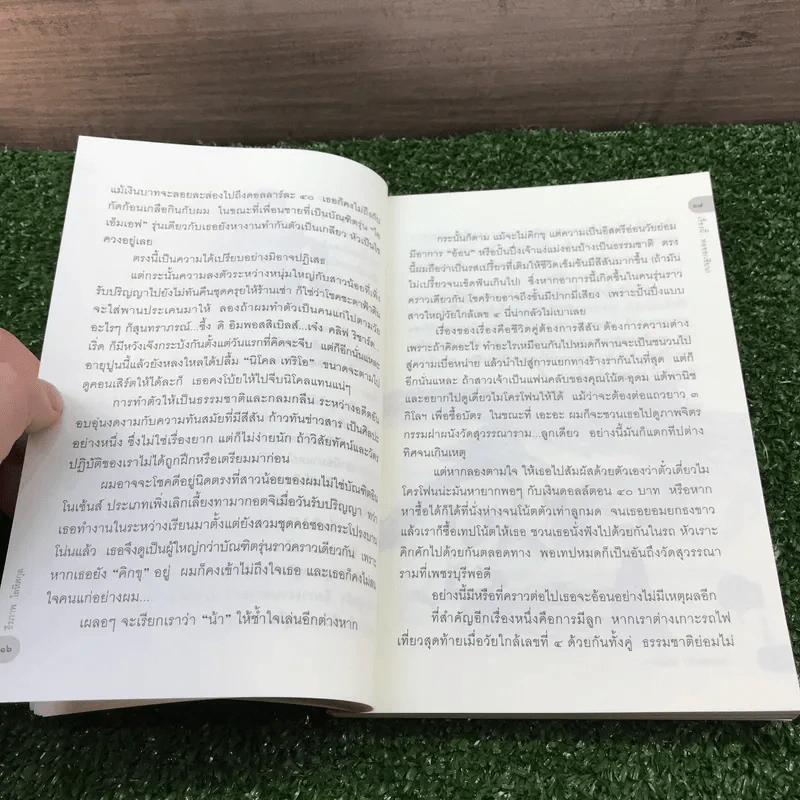 แม้เงินบาทจะลอยละล่องไปถึงดอลลาร์ละ ๔๐ เธอก็คงไม่ถึงกับ
กัดก้อนเกลือกินกับผม ในขณะที่เพื่อนชายที่เป็นบัณฑิตรุ่น "ไอ
เอ็มเอฟ" รุ่นเดียวกับเธอยังหางานทำกันตัวเป็นเกลียว หัวเป็นไข
ควงอยู่เลย
ตรงนี้เป็นความได้เปรียบอย่างมิอาจปฏิเสธ
แต่กระนั้นความลงตัวระหว่างหนุ่มใหญ่กับสาวน้อยที่เพิ่ง
รับปริญญาไปยังไม่ทันคืนชุดครุยให้ร้านเช่า ก็ใช่ว่าโชคชะตาฟ้าดิน
จะใส่พานประเคนมาให้ ลองถ้าผมทำตัวเป็นคนแก่ไปตามวัย
อะไรๆ ก็สุนทราภรณ์...ซึ้ง ดิ อิมพอสสิเบิลส์...เจ๋ง คลิฟ ริชาร์ด...
เริ่ด ก็มีหวังเจ๊งกระบ๊งกันตั้งแต่วันแรกที่คิดจะจีบ แต่ก็อีกนั่นแหละ
อายุปูนนี้แล้วยังหลงใหลได้ปลื้ม "นิโคล เทริโอ" ขนาดจะตามไป
ดูคอนเสิร์ตให้ได้ละก็ เธอคงโบ้ยให้ไปจีบนิโคลแทนแน่ๆ
การทำตัวให้เป็นธรรมชาติและกลมกลืน ระหว่างอดีตอัน
อบอุ่นงดงามกับความทันสมัยที่มีสีสัน ก้าวทันข่าวสาร เป็นศิลปะ
อย่างหนึ่ง ซึ่งไม่ใช่เรื่องยาก แต่ก็ไม่ง่ายนัก ถ้าวิสัยทัศน์และวัตร
ปฏิบัติของเราไม่ได้ถูกฝึกหรือเตรียมมาก่อน
ผมอาจจะโชคดีอยู่นิดตรงที่สาวน้อยของผมไม่ใช่บัณฑิตอิน
โนเซ้นส์ ประเภทเพิ่งเลิกเลี้ยงทามากอตจิเมื่อวันรับปริญญา ทว่า
เธอทำงานในระหว่างเรียนมาตั้งแต่ยังสวมชุดคอซองกระโปรงบาน
โน่นแล้ว เธอจึงดูเป็นผู้ใหญ่กว่าบัณฑิตรุ่นราวคราวเดียวกัน เพราะ
หากเธอยัง "คิกขุ" อยู่ ผมก็คงเข้าไม่ถึงใจเธอ และเธอก็คงไม่สน
ใจคนแก่อย่างผม...
เผลอๆ จะเรียกเราว่า "น้า" ให้ช้ำใจเล่นอีกต่างหาก
ธีรภาพ โลหิตกุล
๑๖
๑๗
กระนั้นก็ตาม แม้จะไม่คิกขุ แต่ความเป็นอิสตรีอ่อนวัยย่อม
มีอาการ "อ้อน" หรือปั้นปึ่งเจ้าแง่แม่งอนบ้างเป็นธรรมชาติ ตรง
นี้ผมถือว่าเป็นรสเปรี้ยวที่เติมให้ชีวิตเข้มข้นมีสีสันมากขึ้น (ถ้ามัน
ไม่เปรี้ยวจนเข็ดฟันเกินไป) ซึ่งหากอาการนี้เกิดขึ้นในคนรุ่นราว
คราวเดียวกัน โชคร้ายอาจถึงขั้นมีปากมีเสียง เพราะปั้นปึ่งแบบ
สาวใหญ่วัยใกล้เลข ๔ นี่น่ากลัวไม่เบาเลย
เรื่องของเรื่องคือชีวิตคู่ต้องการสีสัน ต้องการความต่าง
เพราะถ้าคิดอะไร ทำอะไรเหมือนกันไปหมดก็พานจะเป็นชนวนไป
สู่ความเบื่อหน่าย แล้วนำไปสู่การแยกทางร้างรากันในที่สุด แต่ก็
อีกนั่นแหละ ถ้าสาวเจ้าเป็นแฟนคลับของคุณโน้ต-อุดม แต้พานิช
และอยากไปดูเดี่ยวไมโครโฟนให้ได้ แม้ว่าจะต้องต่อแถวยาว ๓
กิโลฯ เพื่อซื้อบัตร ในขณะที่ เอะอะ ผมก็จะชวนเธอไปดูภาพจิตร
กรรมฝาผนังวัดสุวรรณาราม...ลูกเดียว อย่างนี้มันก็แตกทีปต่าง
ทิศจนเกินเหตุ
แต่หากลองตามใจ ให้เธอไปสัมผัสด้วยตัวเองว่าตั๋วเดี่ยวไม
โครโฟนน่ะมันหายากพอๆ กับเงินดอลล์ตอน ๔๐ บาท หรือหาก
หาซื้อได้ก็ได้ที่นั่งห่างจนโน้ตตัวเท่าลูกมด จนเธอยอมยกธงขาว
แล้วเราก็ซื้อเทปโน้ตให้เธอ ชวนเธอนั่งฟังไปด้วยกันในรถ หัวเราะ
คิกคักไปด้วยกันตลอดทาง พอเทปหมดก็เป็นอันถึงวัดสุวรรณา
รามที่เพชรบุรีพอดี
อย่างนี้มีหรือที่คราวต่อไปเธอจะอ้อนอย่างไม่มีเหตุผลอีก
ที่สำคัญอีกเรื่องหนึ่งคือการมีลูก หากเราต่างเกาะรถไฟ
เที่ยวสุดท้ายเมื่อวัยใกล้เลขที่ ๔ ด้วยกันทั้งคู่ ธรรมชาติย่อมไม่